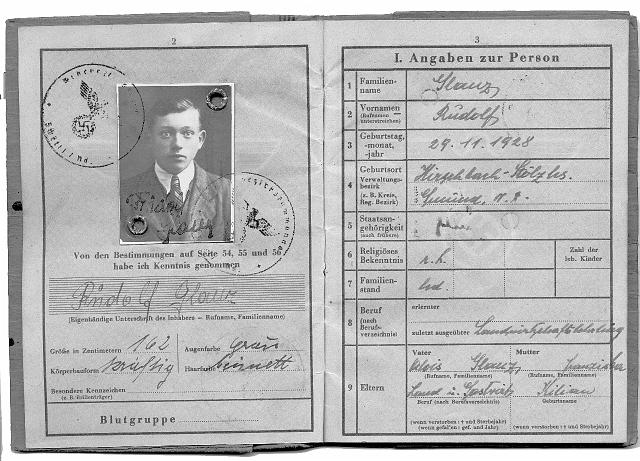 2
Von den Bestimmungen auf Seite 54, 55 und 56
habe ich Kenntnis genommen
Rudolf Glanz
(Eigenhändige Unterschrift des Inhabers – Rufname, Familienname)
Größe in Zentimetern 162
Augenfarbe grau
Körperbauform kräftig
Haarfarbe brünett
Besondere Kennzeichen
(z. B. Brillenträger)
Blutgruppe
3
I. Angaben zur Person
1 Familienname Glanz
2 Vornamen (Rufnamen unterstreichen) Rudolf
3 Geburtstag, -monat, -jahr 29. 11. 1928
4 Geburtsort Verwaltungsbezirk (z. B. Kreis, Reg. Bezirk) Hirschbach
Gmünd
5 Staatsangehörigkeit (auch frühere)
6 Religiöses Bekenntnis r. k. Zahl der leb. Kinder
7 Familienstand led.
8 Beruf (nach Berufsverzeichnis) erlernter
zuletzt ausgeübter
9 Eltern
Vater Mutter
Alois Glanz Franziska
(Rufname, Familienname) (Rufname, Familienname)
Land u. Gastwirt Kilian
Beruf (nach Berufsverzeichnis) Geburtsname
(wenn verstorben: † und Sterbejahr) (wenn verstorben: † und Sterbejahr)
(wenn gefallen: gef. und Jahr)